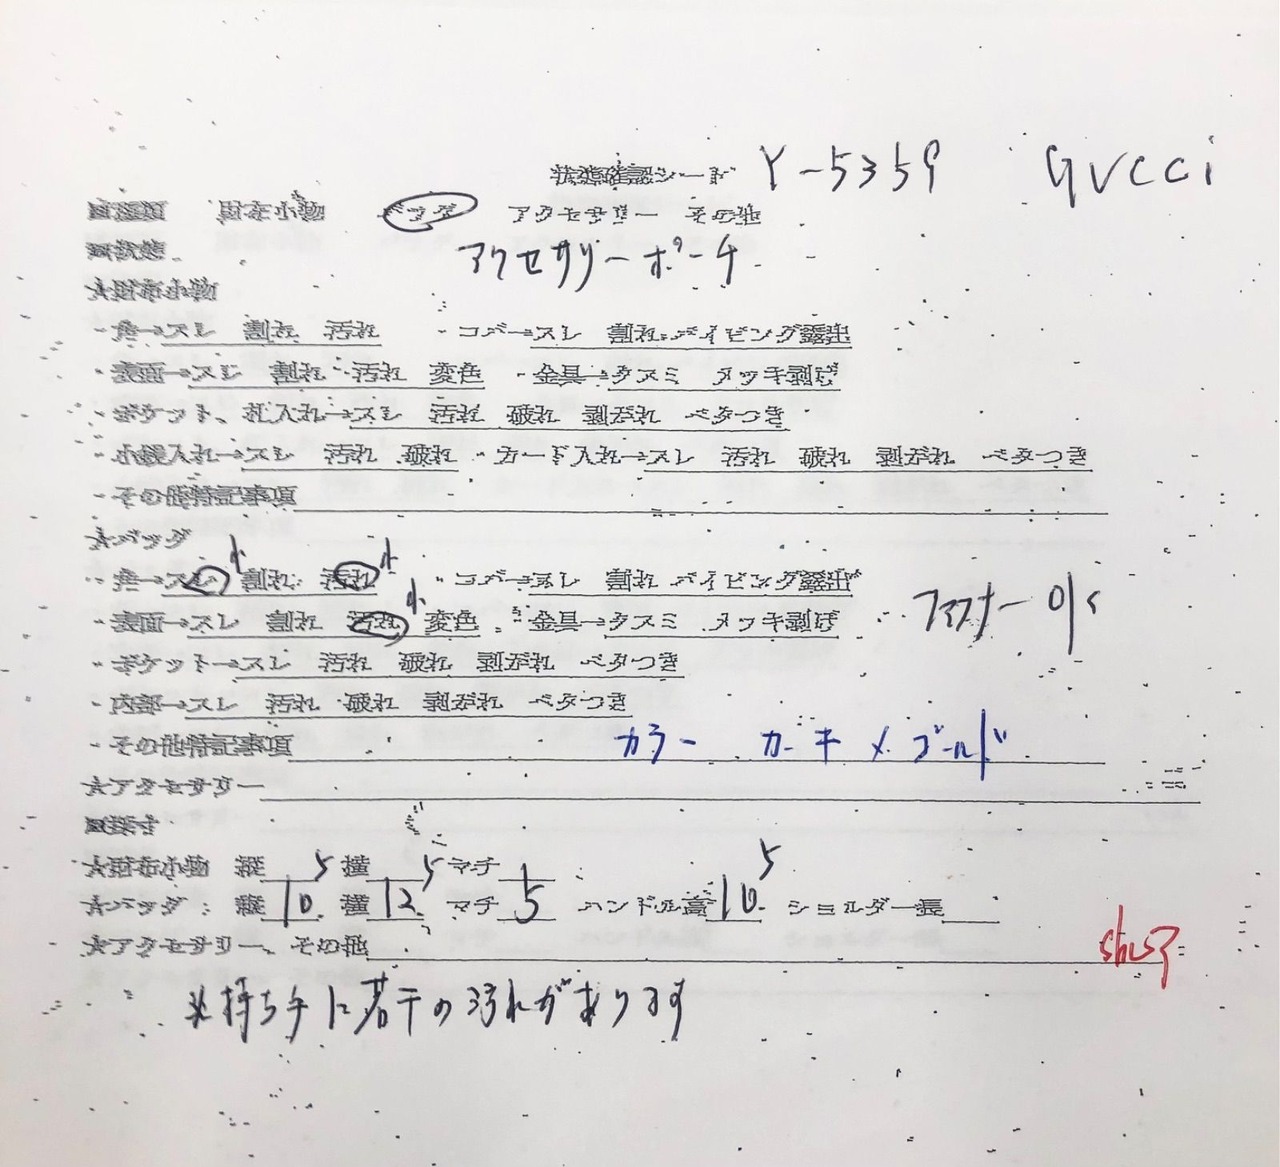 状態確認シート Y-5359 GUCCI
■種類 財布小物 バッグ アクセサリー その他
■状態 アクセサリーポーチ
★財布小物
・角→スレ 割れ 汚れ ・コバ→スレ 割れ パイピング露出
・表面→スレ 割れ 汚れ 変色 ・金具→クスミ メッキ剥げ
・ポケット、札入れ→スレ 汚れ 破れ 剥がれ ベタつき
・小銭入れ→スレ 汚れ 破れ ・カード入れ→スレ 汚れ 破れ 剥がれ ベタつき
・その他特記事項
★バッグ
・角→スレ 小 割れ 汚れ 小 ・コバ→スレ 割れ パイピング露出
・表面→スレ 割れ 汚れ 小 変色 ・金具→クスミ メッキ剥げ ファスナー OK
・ポケット→スレ 汚れ 破れ 剥がれ ベタつき
・内部→スレ 汚れ 破れ 剥がれ ベタつき
・その他特記事項 カラー カーキ × ゴールド
★アクセサリー
■採寸
★財布小物 縦 横 マチ
★バッグ:縦 10.5 横 12.5 マチ 5 ハンドル高 10.5 ショルダー長
★アクセサリー、その他
※持ち手に若干の汚れがあります